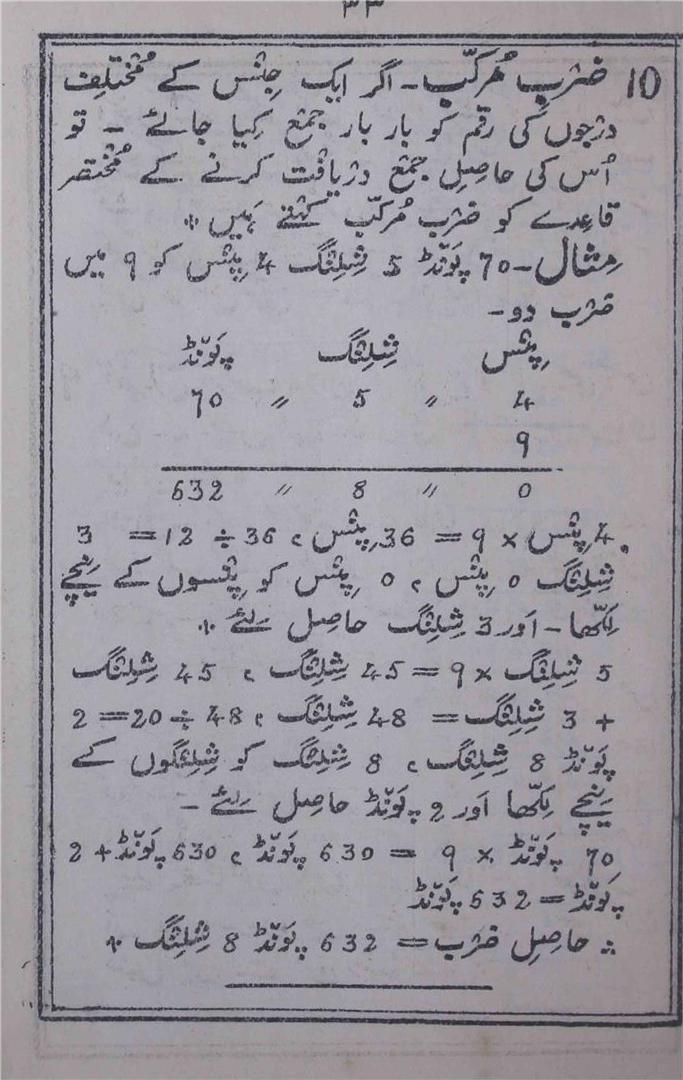 ۳۳
10 ضرْبِ مُرکّب۔ اگر ایک جِنْس کے مُخْتلِف
درْجوں کی رقم کو بار بار جمْع کِیا جائے ۔ تو
اُس کی حاصِلِ جمْع درْیافْت کرنے کے مُخْتصر
قاعِدے کو ضرْبِ مُرکّب کہْتے ہَیں *
مِثال۔ 70 پَونْڈ 5 شِلِنْگ 4 پِنْس کو 9 میں
ضرْب دو۔
پِنْس شِلِنْگ پَونْڈ
4 〃 5 〃 70
9
0 〃 8 〃 632
4 پِنْس × 9 = 36 پِنْس، 36 ÷ 12 = 3
شِلِنْگ 0 پِنْس، 0 پِنْس کو پِنْسوں کے نِیچے
لِکّھا۔ اَور 3 شِلِنْگ حاصِل لِئے *
5 شِلِنْگ × 9 = 45 شِلِنْگ، 45 شِلِنْگ
+ 3 شِلِنْگ = 48 شِلِنْگ، 48 ÷ 20 = 2
پَونْڈ 8 شِلِنْگ، 8 شِلِنْگ کو شِلِنْگوں کے
نِیچے لِکّھا اَور 2 پَونْڈ حاصِل لِئے ۔
70 پَونْڈ × 9 = 630 پَونْڈ، 630 پَونْڈ + 2
پَونْڈ = 632 پَونْڈ
∴ حاصِلِ ضرْب = 632 پَونْڈ 8 شِلِنْگ *